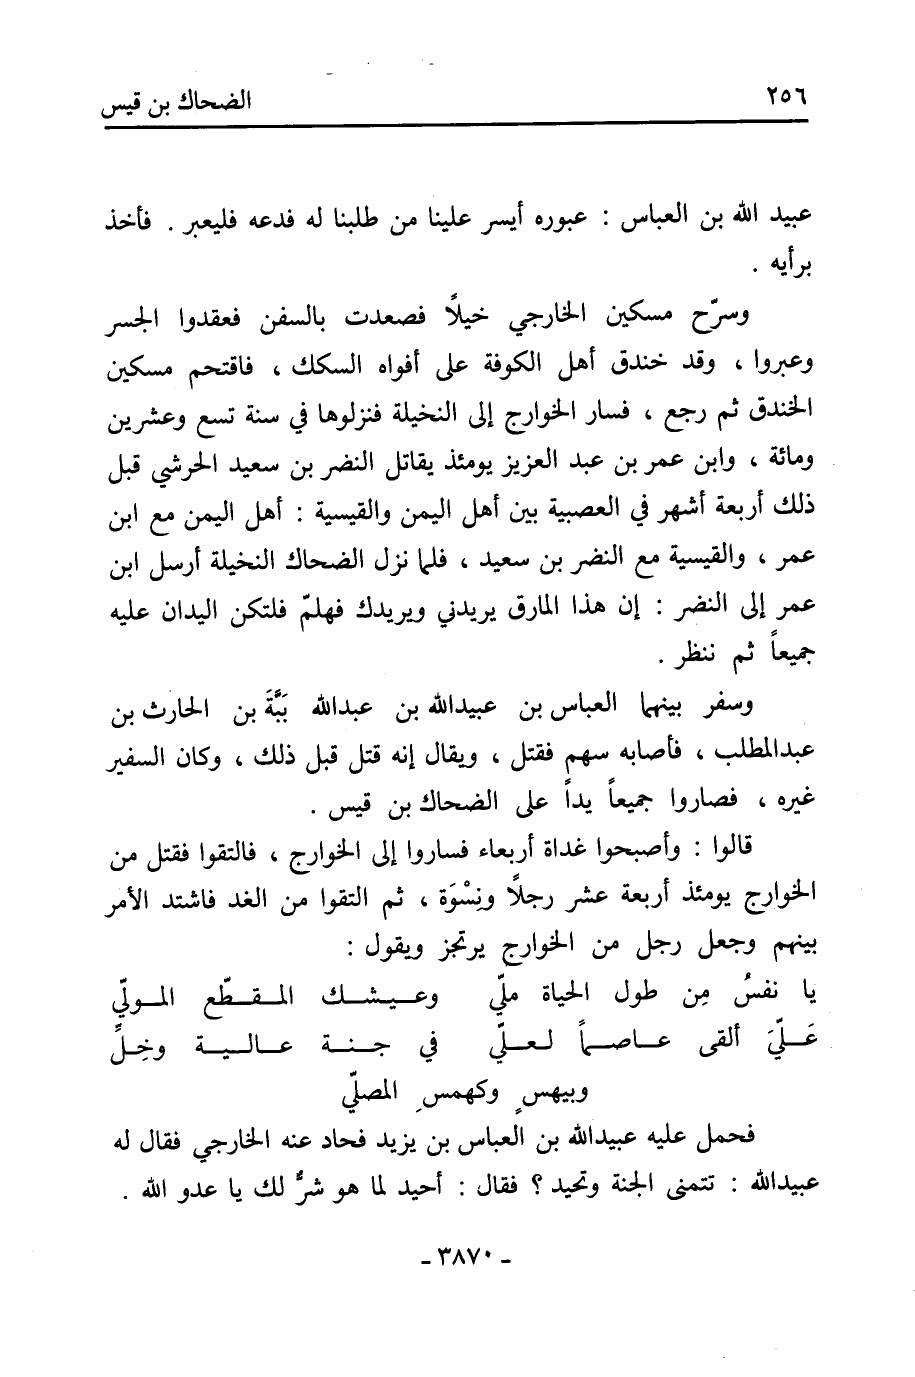 ٢٥٦ الضحاك بن قيس
عبيد الله بن العباس : عبوره أيسر علينا من طلبنا له فدعه فليعبر . فأخذ
برأيه .
وسرّح مسكين الخارجي خيلًا فصعدت بالسفن فعقدوا الجسر
وعبروا ، وقد خندق أهل الكوفة على أفواه السكك ، فاقتحم مسكين
الخندق ثم رجع ، فسار الخوارج إلى النخيلة فنزلوها في سنة تسع وعشرين
ومائة ، وابن عمر بن عبد العزيز يومئذ يقاتل النضر بن سعيد الحرشي قبل
ذلك أربعة أشهر في العصبية بين أهل اليمن والقيسية : أهل اليمن مع ابن
عمر ، والقيسية مع النضر بن سعيد ، فلما نزل الضحاك النخيلة أرسل ابن
عمر إلى النضر : إن هذا المارق يريدني ويريدك فهلمّ فلتكن اليدان عليه
جميعاً ثم ننظر .
وسفر بينهما العباس بن عبيدالله بن عبدالله بَبَّةَ بن الحارث بن
عبدالمطلب ، فأصابه سهم فقتل ، ويقال إنه قتل قبل ذلك ، وكان السفير
غيره ، فصاروا جميعاً يداً على الضحاك بن قيس .
قالوا : وأصبحوا غداة أربعاء فساروا إلى الخوارج ، فالتقوا فقتل من
الخوارج يومئذ أربعة عشر رجلًا ونِسْوَة ، ثم التقوا من الغد فاشتد الأمر
بينهم وجعل رجل من الخوارج يرتجز ويقول :
يا نفسُ مِن طول الحياة ملّي وعيشك المقطّع المولّي
عَلّيَ ألقى عاصماً لعلّي في جنة عالية وخِلِّ
وبيهسٍ وكهمسِ المصلّي
فحمل عليه عبيدالله بن العباس بن يزيد فحاد عنه الخارجي فقال له
عبيدالله : تتمنى الجنة وتحيد ؟ فقال : أحيد لما هو شرٌ لك يا عدو الله .
ـ ٣٨٧٠ ـ